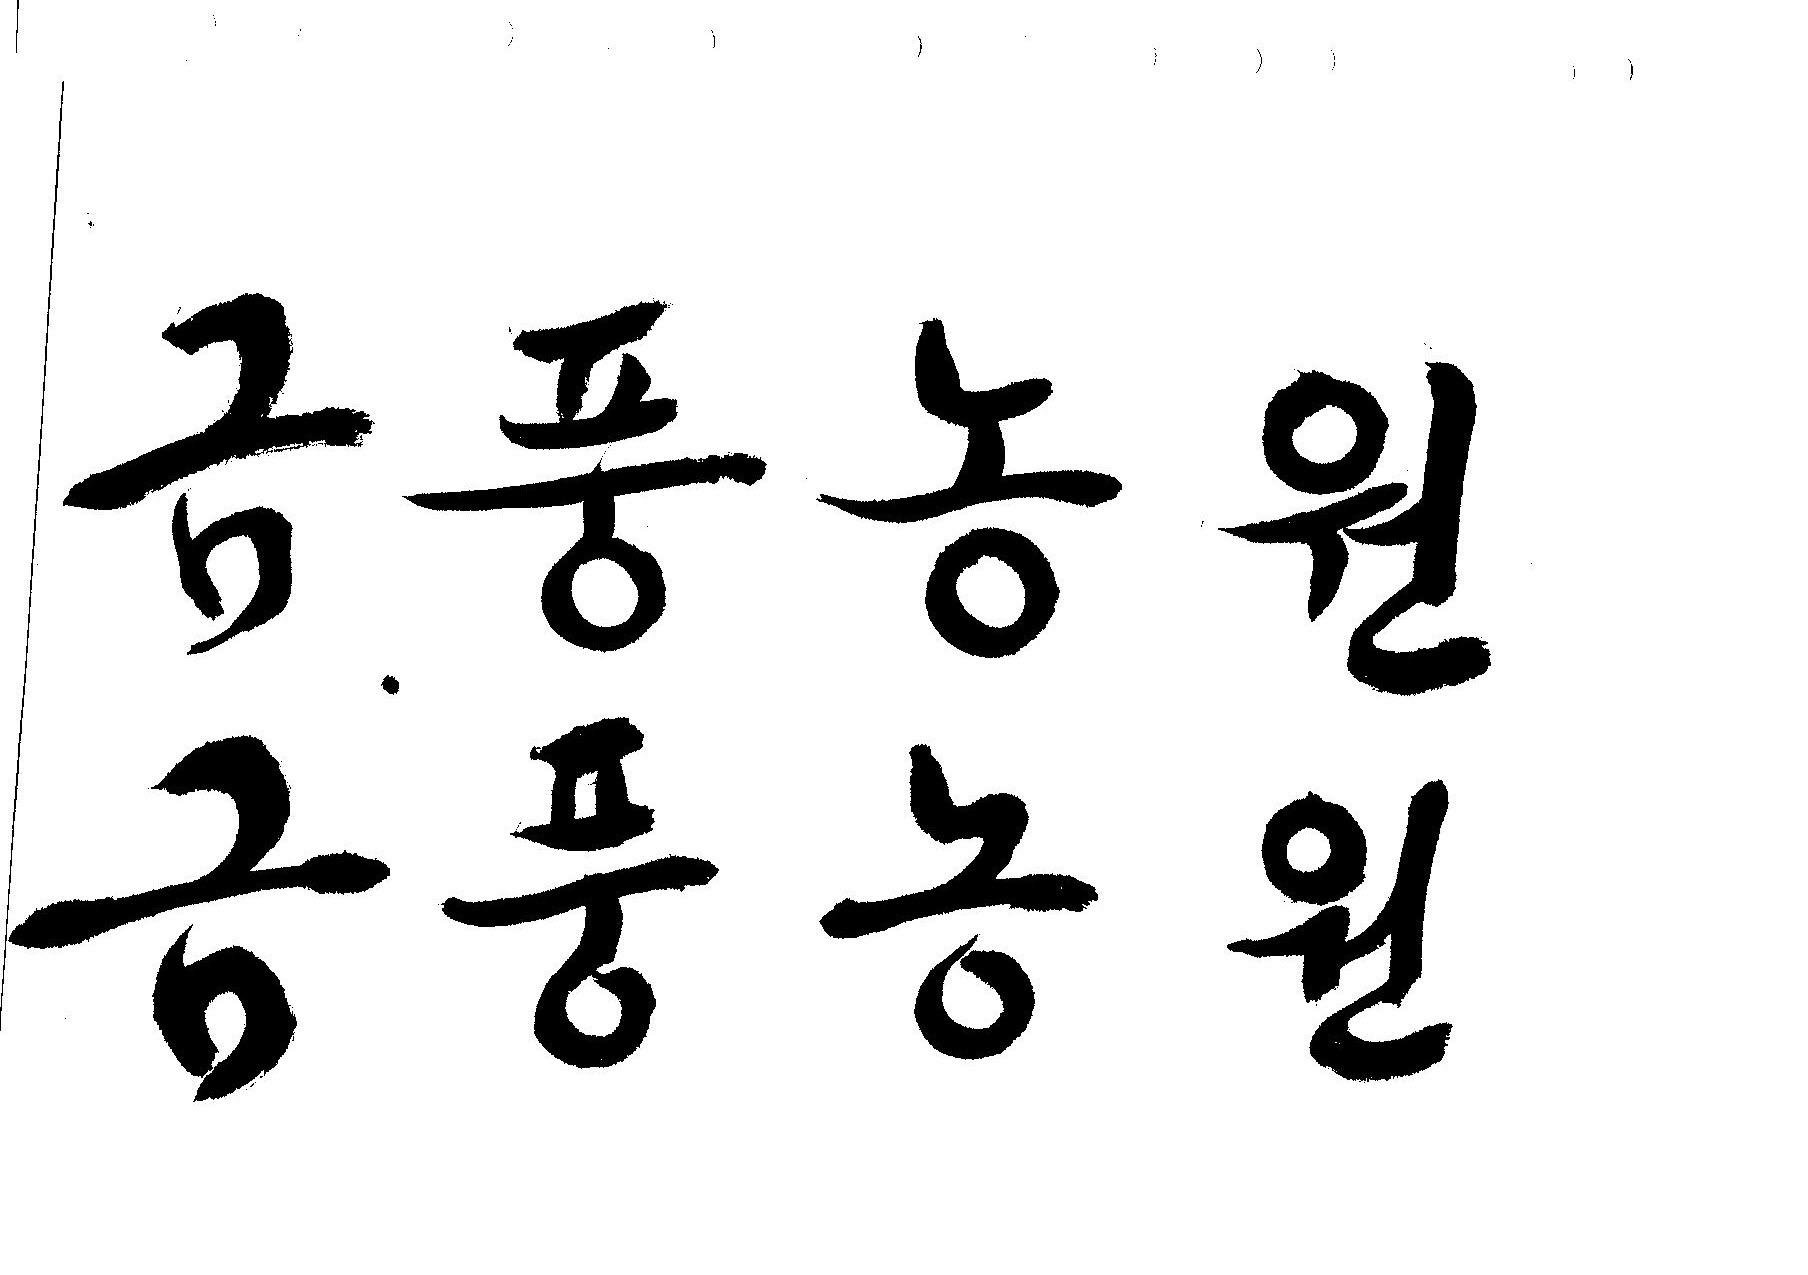 금풍농원
금풍농원